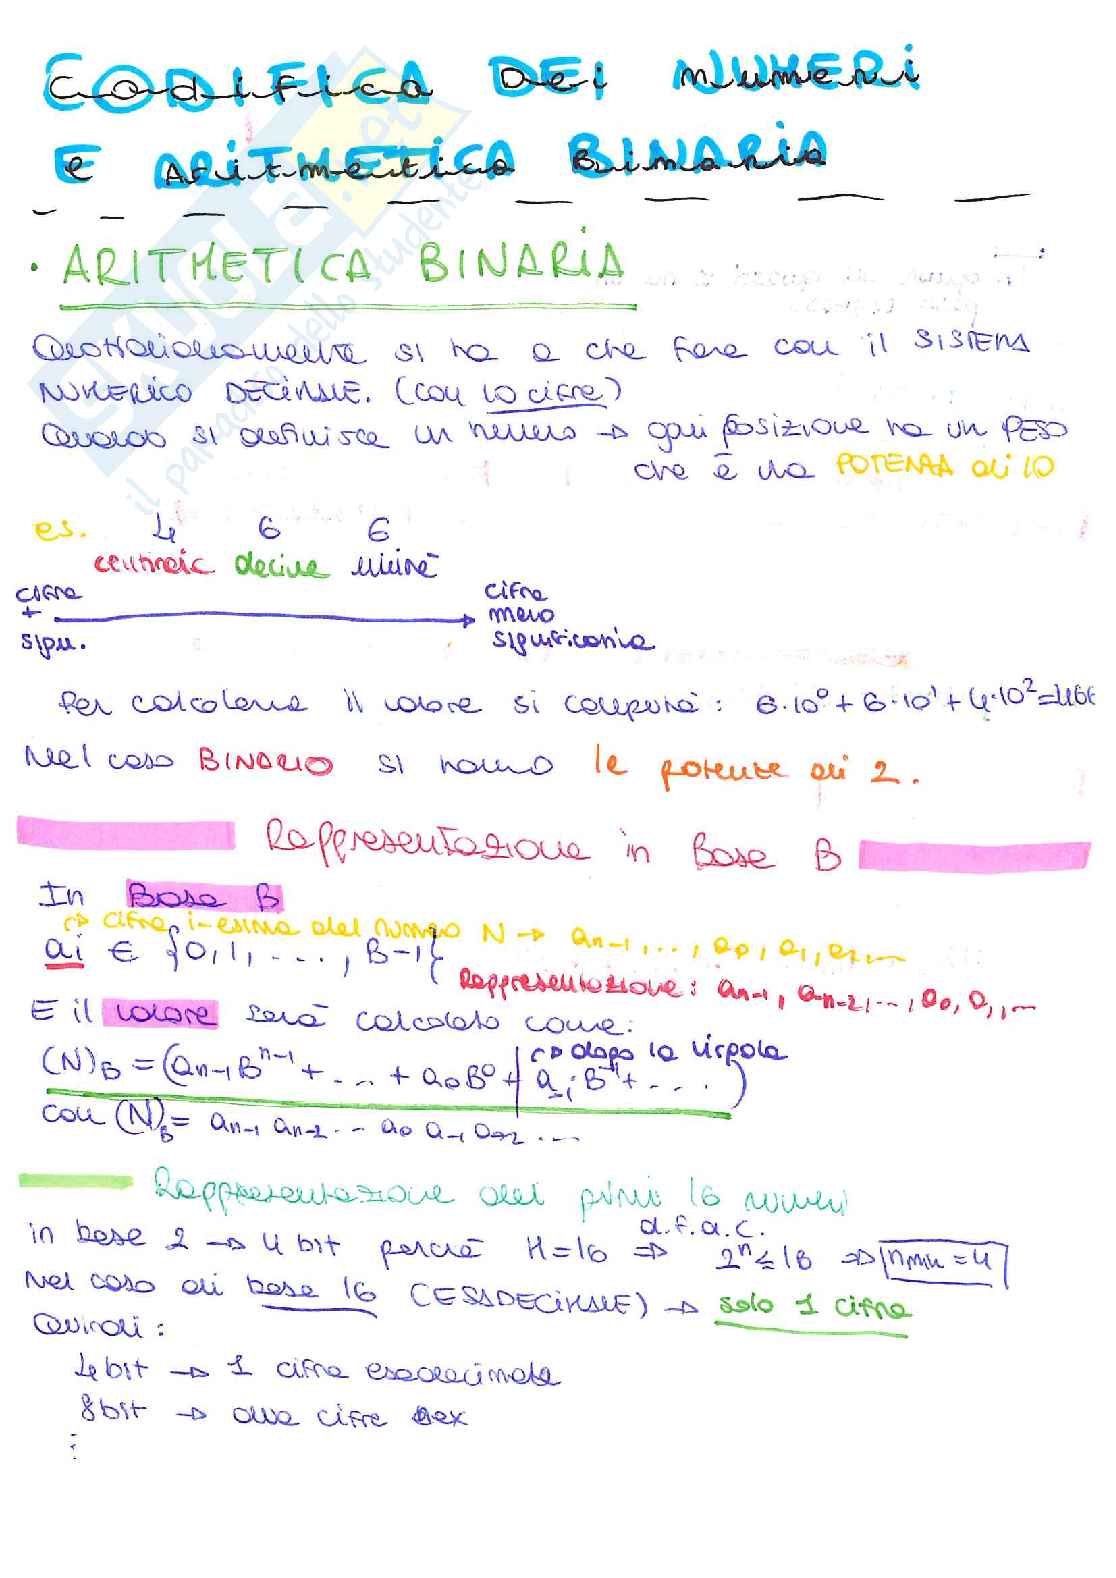 CODIFICA DEI NUMERI
E ARITMETICA BINARIA
SKUOLA.net
il paradiso dello studente
· ARITMETICA BINARIA
Quotidianamente si ha a che fare con il SISTEMA
NUMERICO DECIMALE. (con 10 cifre)
Quando si definisce un numero → ogni posizione ha un PESO
che è una POTENZA di 10
es. 4 6 6
centinaia decine unità
cifra + sign. → cifra meno significativa
Per calcolarne il valore si computa: 6·10⁰ + 6·10¹ + 4·10² = 466
Nel caso BINARIO si hanno le potenze di 2.
Rappresentazione in Base B
In Base B
↳ cifra i-esima del numero N → an-1, ..., a0, a1, a2, ...
ai ∈ {0, 1, ..., B-1}
Rappresentazione: an-1, an-2, ..., a0, a1, ...
E il valore sarà calcolato come:
↳ dopo la virgola
(N)B = (an-1 Bⁿ⁻¹ + ... + a0 B⁰ + | a-1 B⁻¹ + ...)
con (N)B = an-1 an-2 ... a0 a-1 a-2 ...
Rappresentazione dei primi 16 numeri
d.f.a.c.
in base 2 → 4 bit perché M=16 ⇒ 2ⁿ ≤ 16 ⇒ nmin = 4
Nel caso di base 16 (ESADECIMALE) → solo 1 cifra
Quindi:
4 bit → 1 cifra esadecimale
8 bit → due cifre hex
⋮